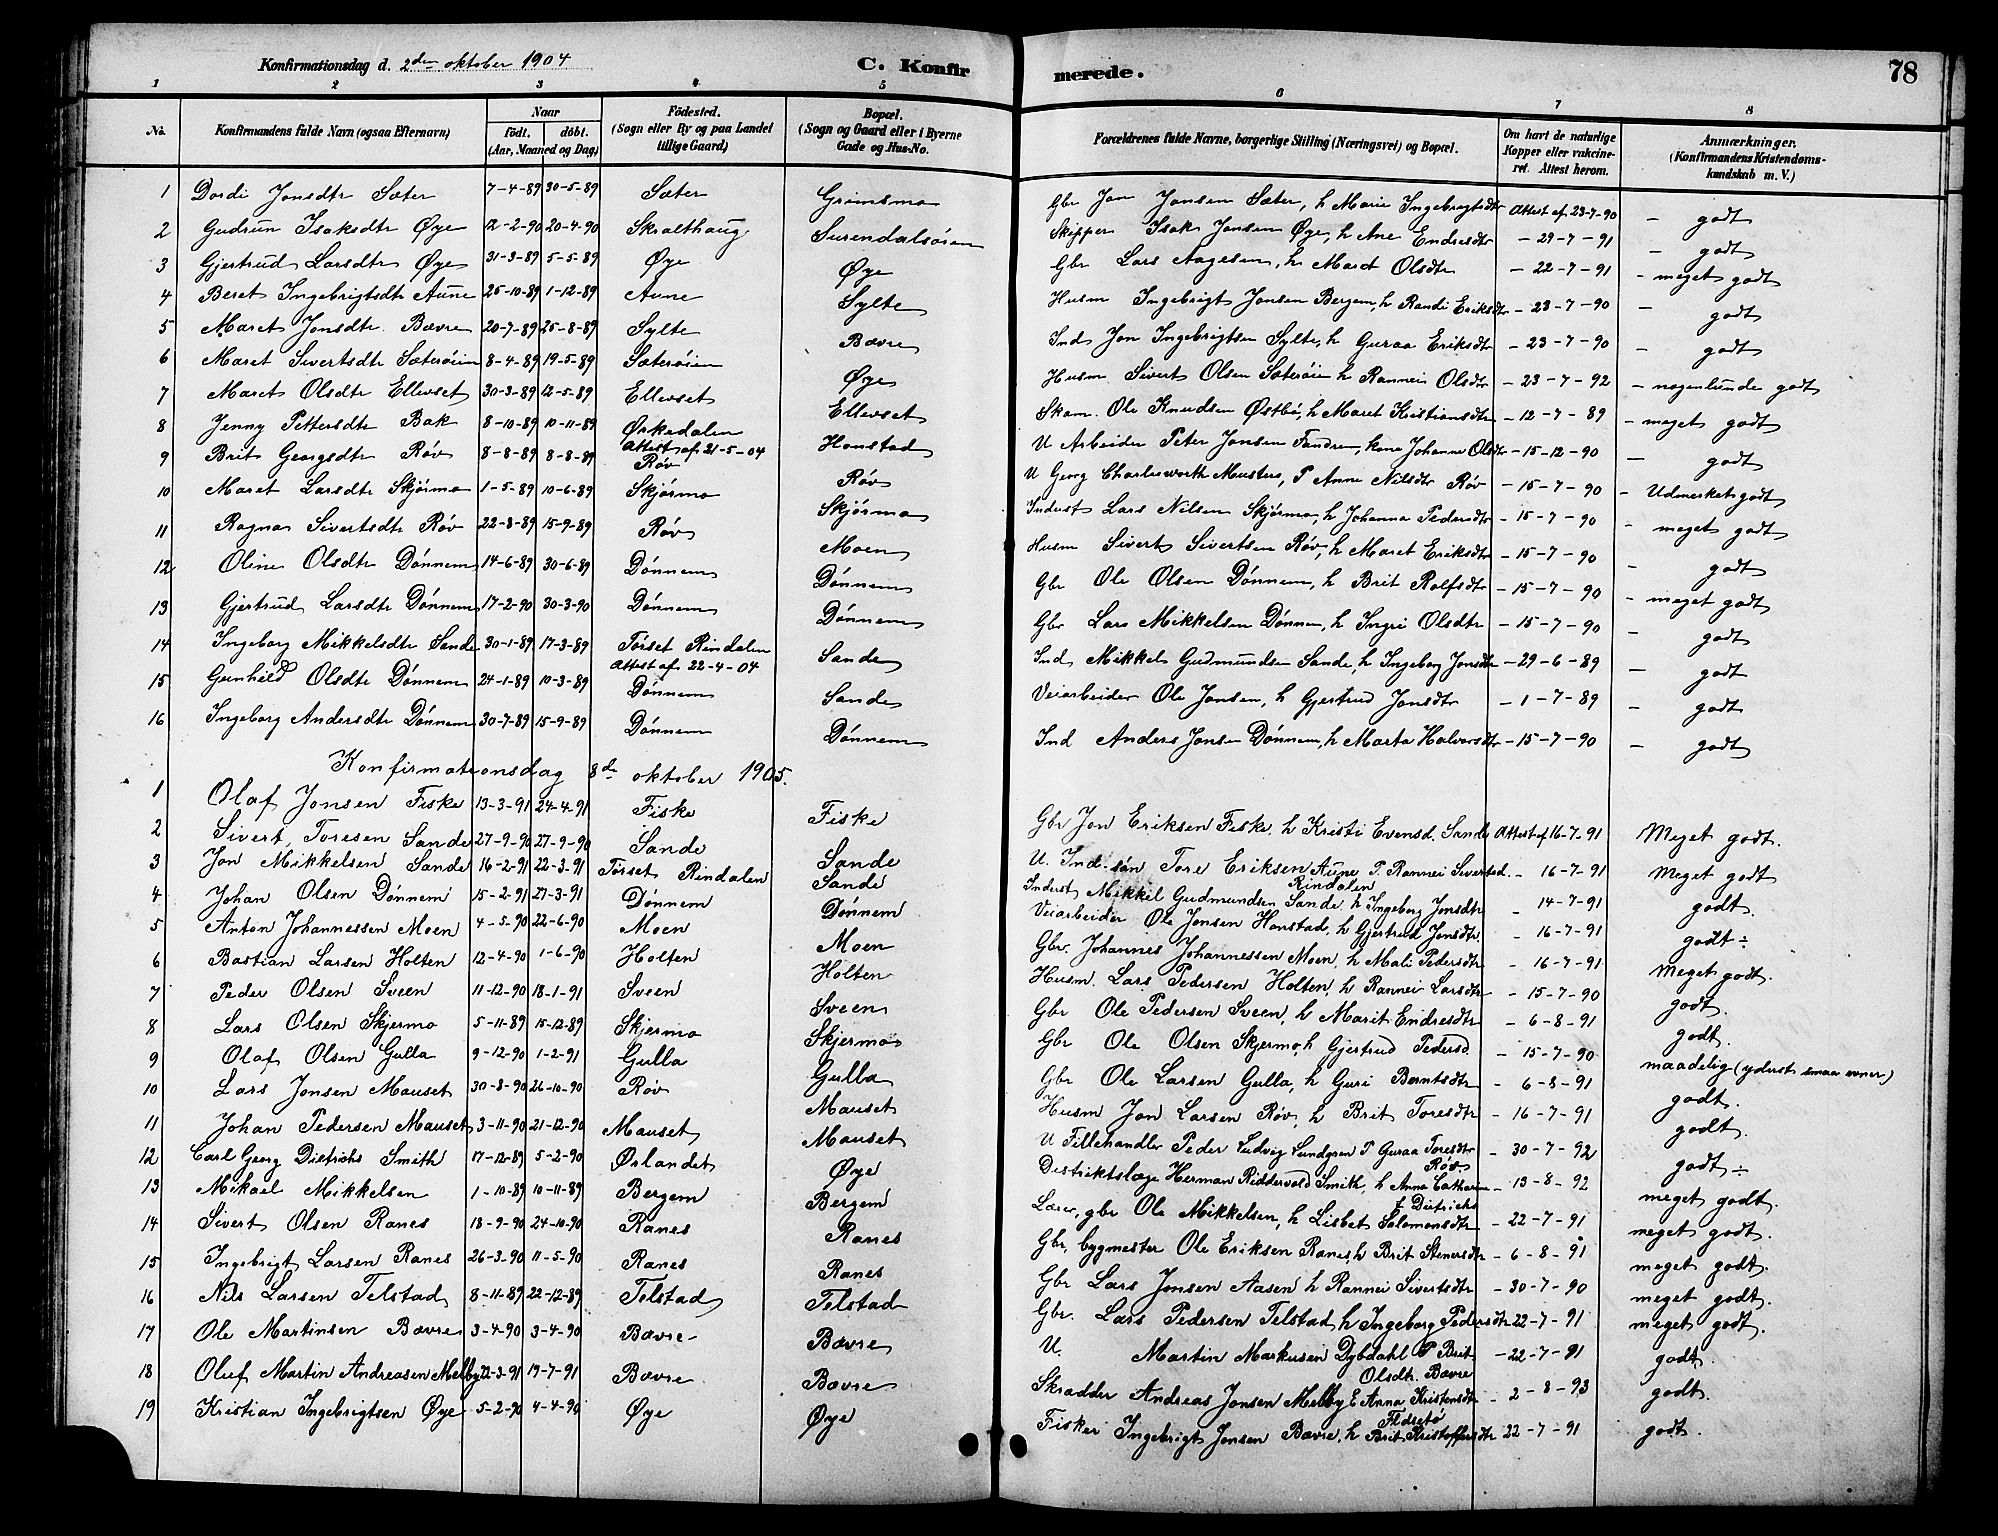 Konfirmationsdag d. 2den oktober 1904 C. Konfirmerede. 78
1 2 3 4 5 6 7 8
No. Konfirmandens fulde Navn (ogsaa Efternavn) Naar født, døbt. (Aar, Maaned og Dag) Fødested. (Sogn eller By og paa Landet tillige Gaard) Bopæl. (Sogn og Gaard eller i Byerne Gade og Hus-No. Forældrenes fulde Navne, borgerlige Stilling (Næringsvei) og Bopæl. Om havt de naturlige Kopper eller vakcineret. Attest herom. Anmærkninger. (Konfirmandens Kristendomskundskab m. V.)
1 Dordi Jonsdtr Sæter 7-4-89 30-5-89 Sæter Grimsmo Gbr Jon Jonsen Sæter, h Marie Ingebrigtsdtr Attest af 23-7-90 - godt
2 Gudrun Isaksdtr Øye 12-2-90 20-4-90 Skralthaug Surendalsøren Skipper Isak Jonsen Øye, h Ane Endresdtr - 29-7-91 - godt
3 Gjertrud Larsdtr Øye 31-3-89 5-5-89 Øye Øye Gbr Lars Aagesen, h Maret Olsdtr - 22-7-91 - meget godt
4 Beret Ingebrigtsdtr Aune 25-10-89 1-12-89 Aune Sylte Husm Ingebrigt Jonsen Bergem, h Randi Eriksdtr - 23-7-90 - godt
5 Maret Jonsdtr. Bævre 20-7-89 25-8-89 Sylte Bævre Ind Jon Ingebrigtsen Sylte, h Guraa Eriksdtr - 23-7-90 - godt
6 Maret Sivertsdtr Sæterøien 8-4-89 19-5-89 Sæterøien Øye Husm Sivert Olsen Sæterøie h Rannei Olsdtr - 23-7-92 - nogenlunde godt
7 Maret Olsdtr Ellevset 30-3-89 12-5-89 Ellevset Ellevset Skom. Ole Knudsen Østbø, h Maret Kristiansdtr - 12-7-89 - meget godt
8 Jenny Pettersdtr Bak 8-10-89 10-11-89 Ørkedalen Attest af 21-5-04 Honstad U Arbeider Peter Jonsen Fandrem, kone Johanne Olsdtr - 15-12-90 - godt
9 Brit Georgsdtr Røv 8-8-89 8-8-89 Røv Røv U Georg Charlesworth Musters, P Anne Nilsdtr Røv - 15-7-90 - Udmerket godt
10 Maret Larsdtr Skjørmo 1-5-89 10-6-89 Skjørmo Skjørmo Inderst Lars Nilsen Skjørmo, h Johanna Pedersdtr - 15-7-90 - meget godt
11 Ragna Sivertsdtr Røv 22-8-89 15-9-89 Røv Moen Husm Sivert Sivertsen Røv, h Maret Eriksdtr - 15-7-90 - godt
12 Oline Olsdtr Dønnem 14-6-89 30-6-89 Dønnem Dønnem Gbr Ole Olsen Dønnem, h Brit Rolfsdtr - 15-7-90 - meget godt
13 Gjertrud Larsdtr Dønnem 17-2-90 30-3-90 Dønnem Dønnem Gbr Lars Mikkelsen Dønnem, h Ingri Olsdtr - 15-7-90 - godt
14 Ingeborg Mikkelsdtr Sande 30-1-89 17-3-89 Tørset Rindalen Attest af 22-4-04 Sande Ind Mikkel Gudmundsen Sande, h Ingeborg Jonsdtr - 29-6-89 - godt
15 Gunhild Olsdtr Dønnem 24-1-89 10-3-89 Dønnem Sande Veiarbeider Ole Jonsen, h Gjertrud Jonsdtr - 1-7-89 - godt
16 Ingeborg Andersdtr Dønnem 30-7-89 15-9-89 Dønnem Dønnem Ind Anders Jonsen Dønnem, h Marta Halvorsdtr - 15-7-90 - godt
Konfirmationsdag 8de oktober 1905.
1 Olaf Jonsen Fiske 13-3-91 24-4-91 Fiske Fiske Gbr Jon Eriksen Fiske, h Kristi Evensd. Sande Attest af 16-7-91 Meget godt.
2 Sivert Toresen Sande 27-9-90 27-9-90 Sande Sande U. Ind. søn Tore Eriksen Aune P. Rannei Sivertsd. - 16-7-91 Meget godt
3 Jon Mikkelsen Sande 16-2-91 22-3-91 Tørset Rindalen Sande Inderst Mikkil Gudmundsen Sande, Rindalen h Ingeborg Jonsdtr - 14-7-91 godt.
4 Johan Olsen Dønnem 15-2-91 27-3-91 Dønnem Dønnem Veiarbeider Ole Jonsen Honstad, h Gjertrud Jonsdtr. - 16-7-91 godt ÷
5 Anton Johannessen Moen 4-5-90 22-6-90 Moen Moen Gbr. Johannes Johannessen Moen, h Mali Pedersdtr - 16-7-91 Meget godt.
6 Bastian Larsen Holten 12-4-90 1-6-90 Holten Holten Husm. Lars Pedersen Holten, h Rannei Larsdtr - 15-7-90 godt.
7 Peder Olsen Sveen 11-12-90 18-1-91 Sveen Sveen Gbr Ole Pedersen Sveen, h Marit Endresdtr - 6-8-91 godt.
8 Lars Olsen Skjermo 5-11-89 15-12-89 Skjermo Skjermo Gbr Ole Olsen Skjermo, h Gjertrud Pedersd. - 15-7-90 maadelig (yderst smaa evner)
9 Olaf Olsen Gulla 9-12-90 1-2-91 Gulla Gulla Gbr Ole Larsen Gulla, h Guri Berntsdtr - 6-8-91 godt.
10 Lars Jonsen Mauset 30-8-90 26-10-90 Røv Mauset Husm Jon Larsen Røv, h Brit Toresdtr - 16-7-91 godt.
11 Johan Pedersen Mauset 3-11-90 21-12-90 Mauset Mauset U Fillehandler Peder Ludvig Lundgren P Guraa Toresdtr Røv - 30-7-92 godt ÷
12 Carl Georg Dietrichs Smith 17-12-89 5-2-90 Ørlandet Øye Distriktslæge Herman Riddervold Smith, h Anna Catharine f Dietrichs - 13-8-92 meget godt.
13 Mikael Mikkelsen 1-10-89 10-11-89 Bergem Bergem Lærer, gbr Ole Mikkelsen, h Lisbet Salomonsdtr - 22-7-91 meget godt.
14 Sivert Olsen Ranes 18-9-90 24-10-90 Ranes Ranes Gbr, bygmester Ole Eriksen Ranes, h Brit Stenersdtr - 6-8-91 meget godt.
15 Ingebrigt Larsen Ranes 26-3-90 11-5-90 Ranes Ranes Gbr Lars Jonsen Aasen h Rannei Sivertsdtr - 30-7-90 meget godt.
16 Nils Larsen Telstad 8-11-89 22-12-89 Telstad Telstad Gbr. Lars Pedersen Telstad h Ingeborg Pedersdtr 22-7-91 meget godt.
17 Ole Martinsen Bævre 3-4-90 3-4-90 Bævre Bævre U. Martin Markusen Dybdahl P Brit Olsdtr. Bævre - 22-7-91 godt.
18 Oluf Martin Andreasen Melby 22-3-91 19-7-91 Bævre Bævre Skrædder Andreas Jonsen Melby E Anna Kristensdtr Fldsetø - 2-8-93 godt.
19 Kristian Ingebrigtsen Øye 5-2-90 4-4-90 Øye Øye Fisker Ingebrigt Jonsen Bævre, h Brit Kristoffersdtr 22-7-91 godt.